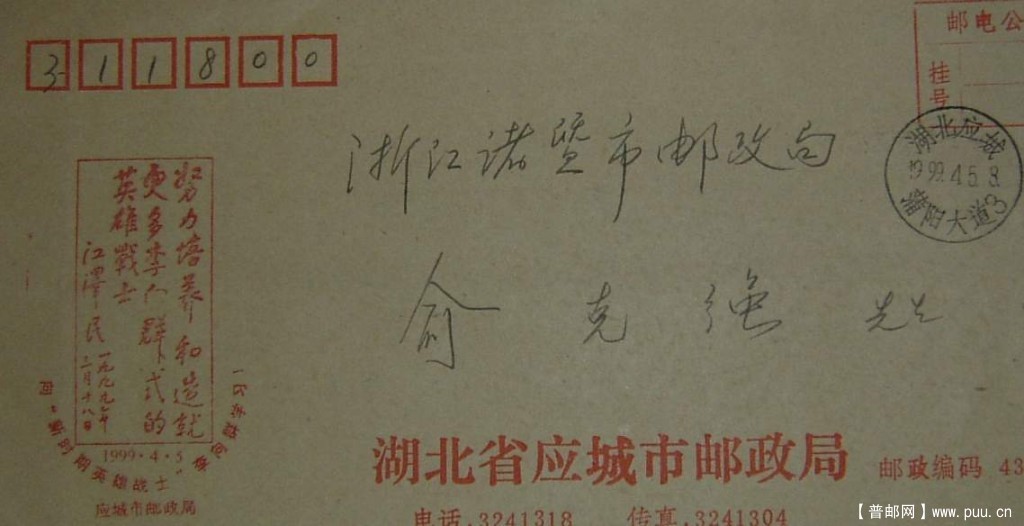 311800
邮电公
挂号
浙江诸暨市邮政局
湖北应城
1999.4.5.8
蒲阳大道3
俞克强 先生
努力培养和造就
更多李向群式的
英雄战士
江泽民
一九九九年
三月十八日
1999·4·5
英雄战士
应城市邮政局
湖北省应城市邮政局 邮政编码 43
电话.3241318 传真.3241304
【普邮网】www.puu.cn